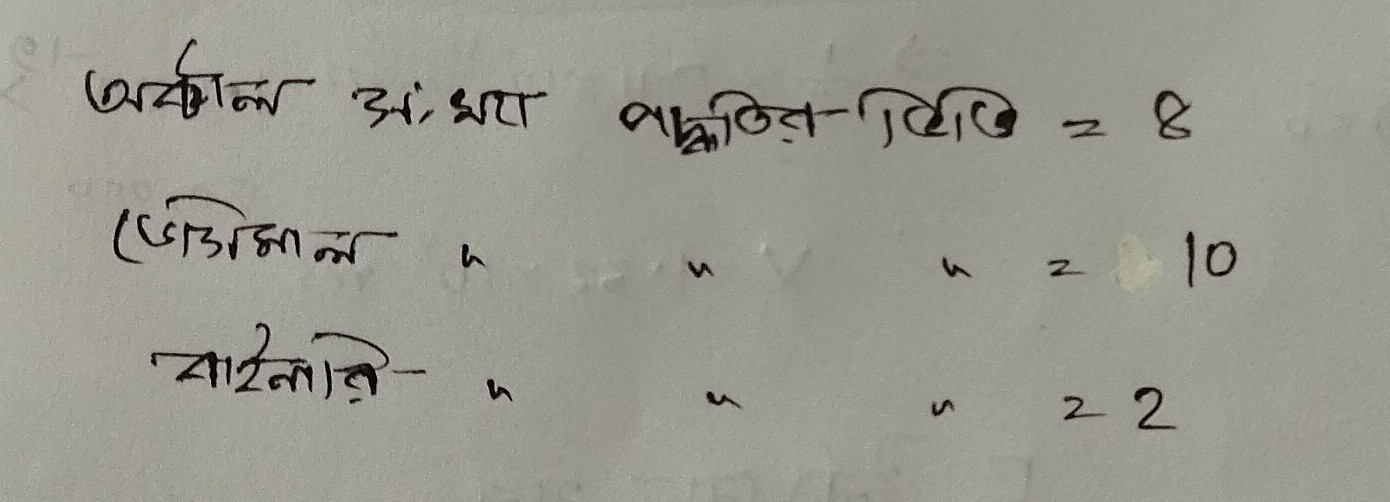 অক্টাল সংখ্যা পদ্ধতির ভিত্তি = 8
ডেসিমাল " " " = 10
বাইনারি " " " = 2